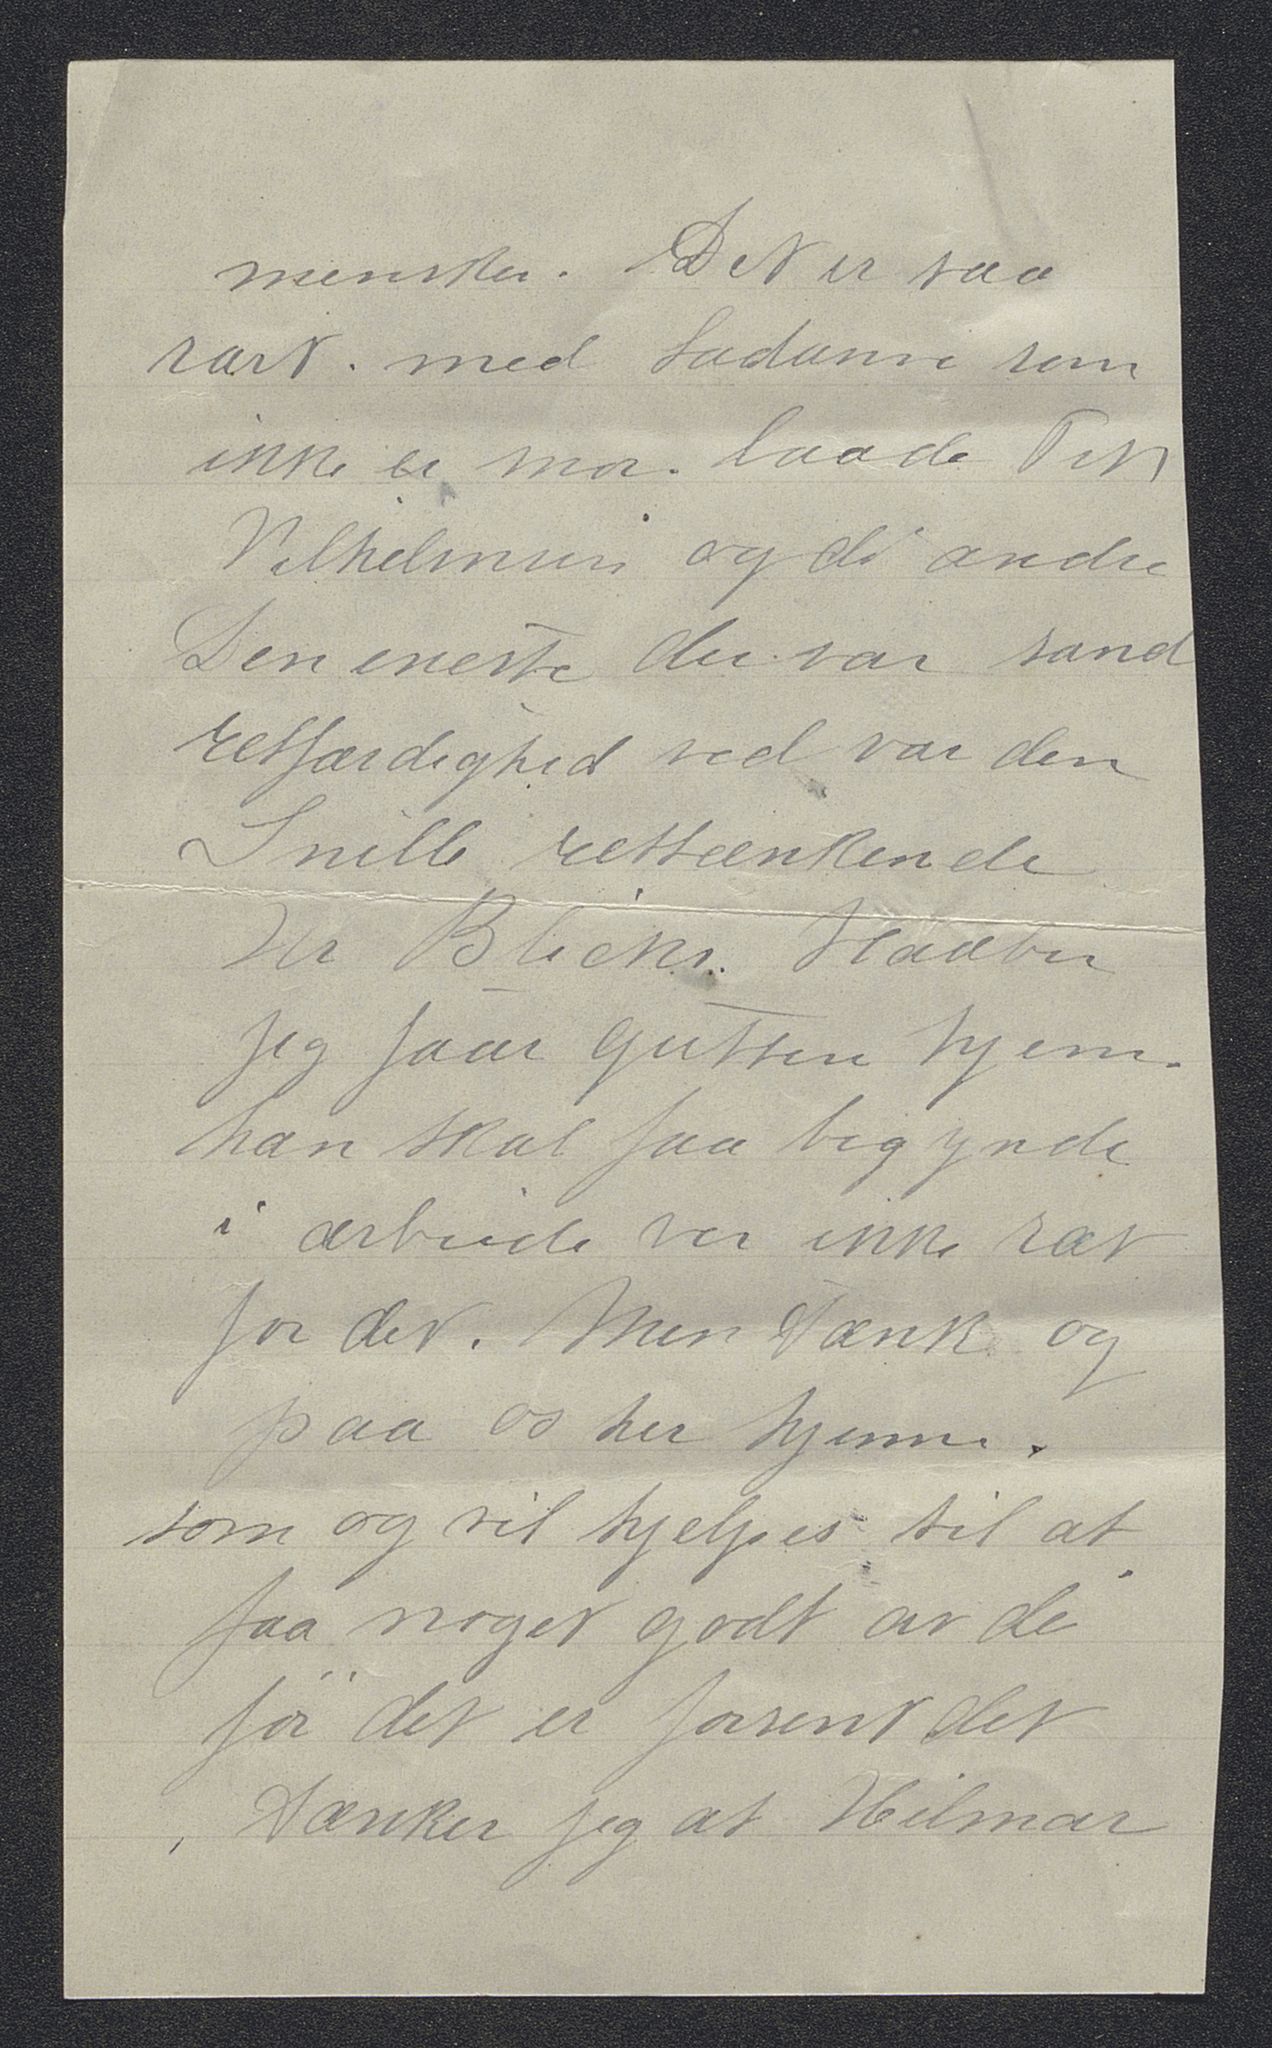 mensker. Det er saa
rart. med sadanne som
ikke er mor. baade Frk
Vilhelmsin og di andre
Den eneste der var sand
retfærdighed ved var den
Snille rettænkende
Hr Blickr. Haaber
jeg faar gutten hjem.
han skal faa begynde
i ærbeide ver ikke ræt
for det. Men tænk og
paa os her hjemme.
som og vil hjelpes til at
faa noget godt av de
för det er forsent det
tænker jeg at Hilmar